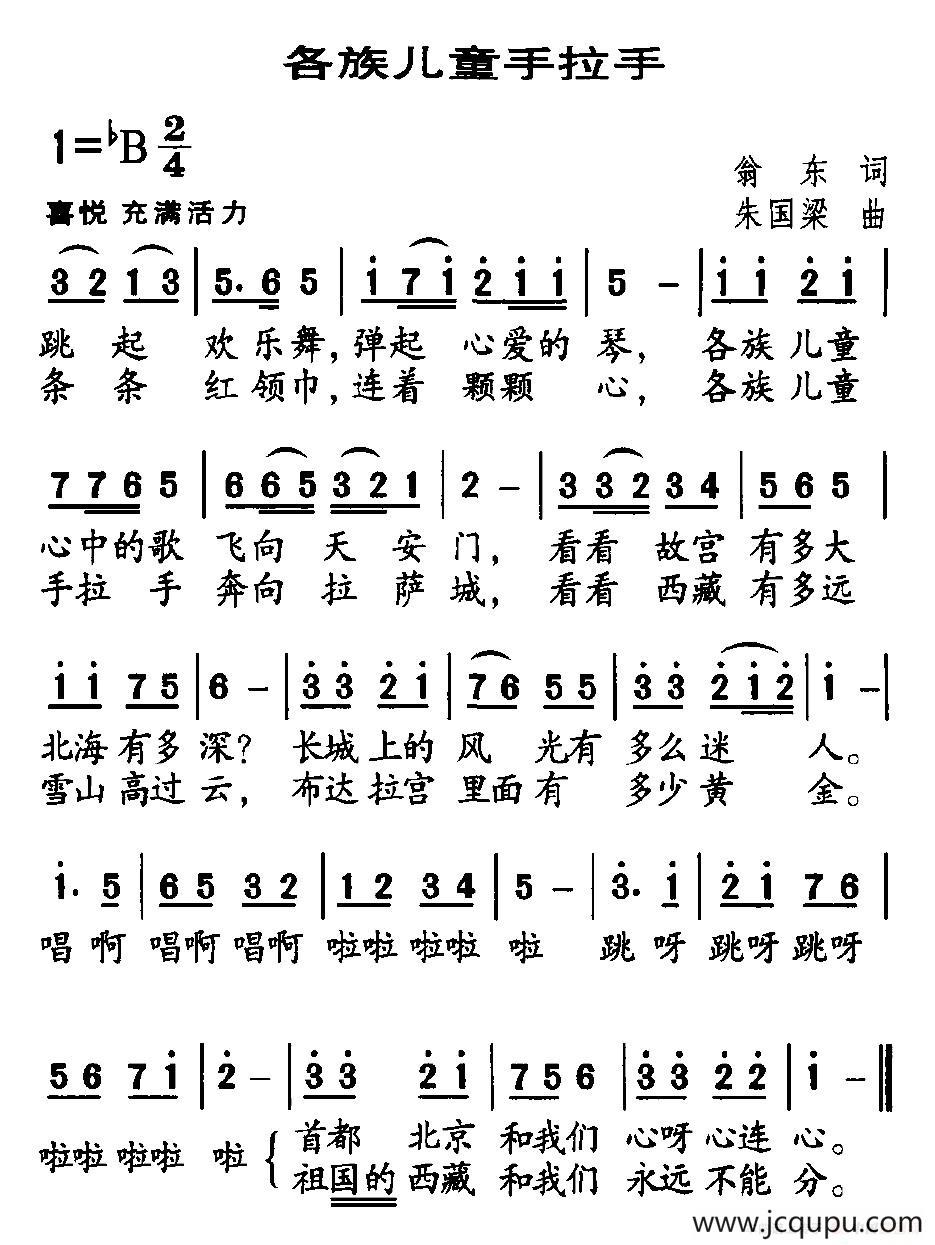 各族儿童手拉手
1=♭B 2/4
翁东 词
喜悦 充满活力
朱国梁 曲
3 2 1 3 | 5. 6 5 | i 7 i 2 i i | 5 - | i i 2 i |
跳起 欢乐舞,弹起 心爱的 琴, 各族儿童
条条 红领巾,连着 颗颗 心, 各族儿童
7 7 6 5 | 6 6 5 3 2 1 | 2 - | 3 3 2 3 4 | 5 6 5 |
心中的歌 飞向 天 安 门, 看看 故宫 有多大
手拉 手 奔向 拉 萨 城, 看看 西藏 有多远
i i 7 5 | 6 - | 3 3 2 i | 7 6 5 5 | 3 3 2 i 2 | i - |
北海有多深? 长城上的 风 光有 多么迷 人。
雪山高过云, 布达拉宫 里面有 多少黄 金。
i. 5 | 6 5 3 2 | 1 2 3 4 | 5 - | 3. i | 2 i 7 6 |
唱 啊 唱啊唱啊 啦啦 啦啦 啦 跳 呀 跳呀跳呀
5 6 7 i | 2 - | 3 3 2 i | 7 5 6 | 3 3 2 2 | i - ‖
啦啦 啦啦 啦 { 首都 北京 和我们 心呀心连 心。
祖国的西藏 和我们 永远不能 分。
www.jcqupu.com